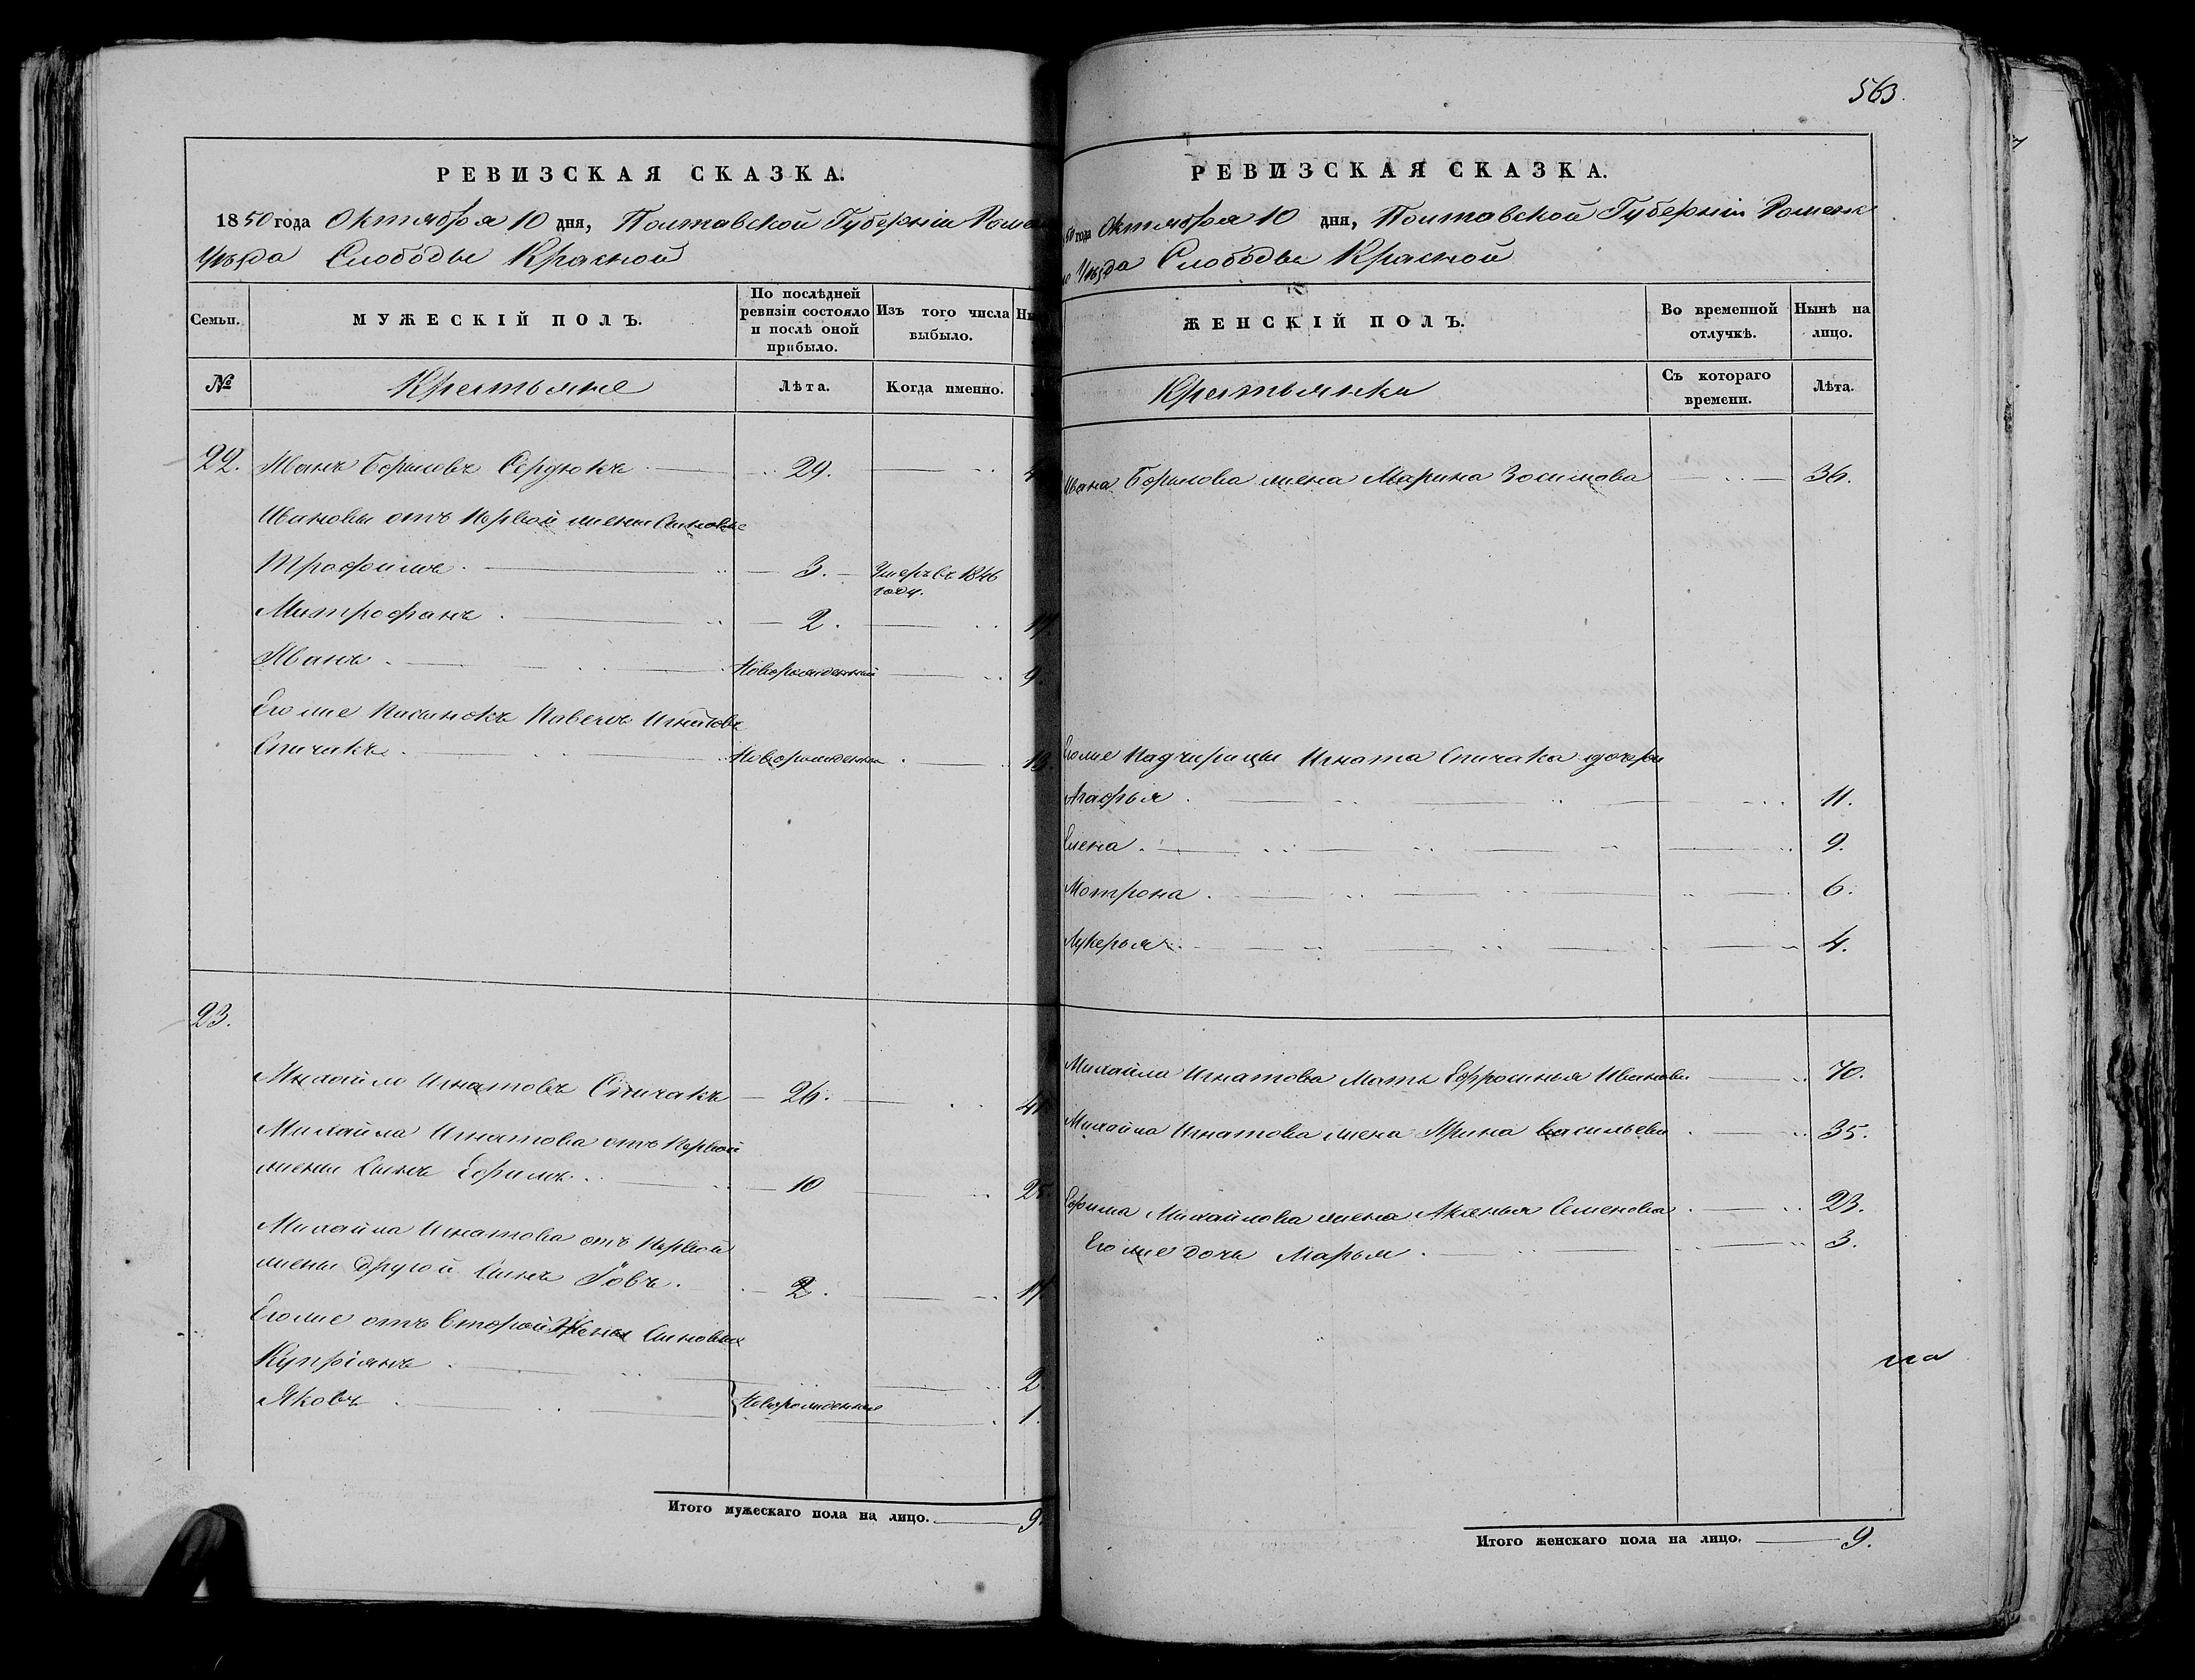 РЕВИЗСКАЯ СКАЗКА.
1850 года Октября 10 дня, Полтавской Губерніи
Уѣзда Слободы Красной
Семьи.
МУЖЕСКІЙ ПОЛЪ.
По послѣдней ревизіи состояло и послѣ оной прибыло.
Изъ того числа выбыло.
№
Крестьяне
Лѣта.
Когда именно.
22. Иванъ Борисовъ Сердюкъ 29.
Ивановы отъ первой жены сыновье
Трофимъ 3. Умеръ въ 1846
году.
Митрофанъ 2. 17.
Иванъ Новорожденный 9.
Его же пасынокъ Павелъ Игнатовъ
Спичакъ Новорожденный 13.
23.
Михайло Игнатовъ Спичакъ 26.
Михайла Игнатова отъ первой
жены сынъ Ефимъ 10 25.
Михайла Игнатова отъ первой
жены другой сынъ Іовъ. 2. 17.
Его же отъ второй жены сыновья
Купріянъ 2.
Яковъ Новорожденные 1.
Итого мужескаго пола на лицо. 9.
563.
РЕВИЗСКАЯ СКАЗКА.
50 года Октября 10 дня, Полтавской Губерніи Роменск
Уѣзда Слободы Красной
ЖЕНСКІЙ ПОЛЪ.
Во временной отлучкѣ.
Нынѣ на лицо.
Крестьянки
Съ котораго времени.
Лѣта.
Ивана Борисова жена Марина Зосимова 36.
Его же падчирицы Игната Спичака дочери
Агафья 11.
Елена 9.
Мотрона 6.
Лукерья 4.
Михайла Игнатова мать Ефросинья Иванова 70.
Михайла Игнатова жена Ирина Васильева 35.
Ефима Михайлова жена Аксенья Семенова 23.
Его же дочь Марья 3.
на
Итого женскаго пола на лицо. 9.